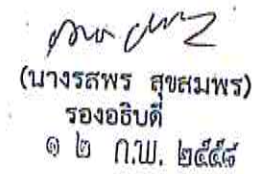 (นางรสพร สุขสมพร)
รองอธิบดี
๑ ๒ ก.พ. ๒๕๕๘